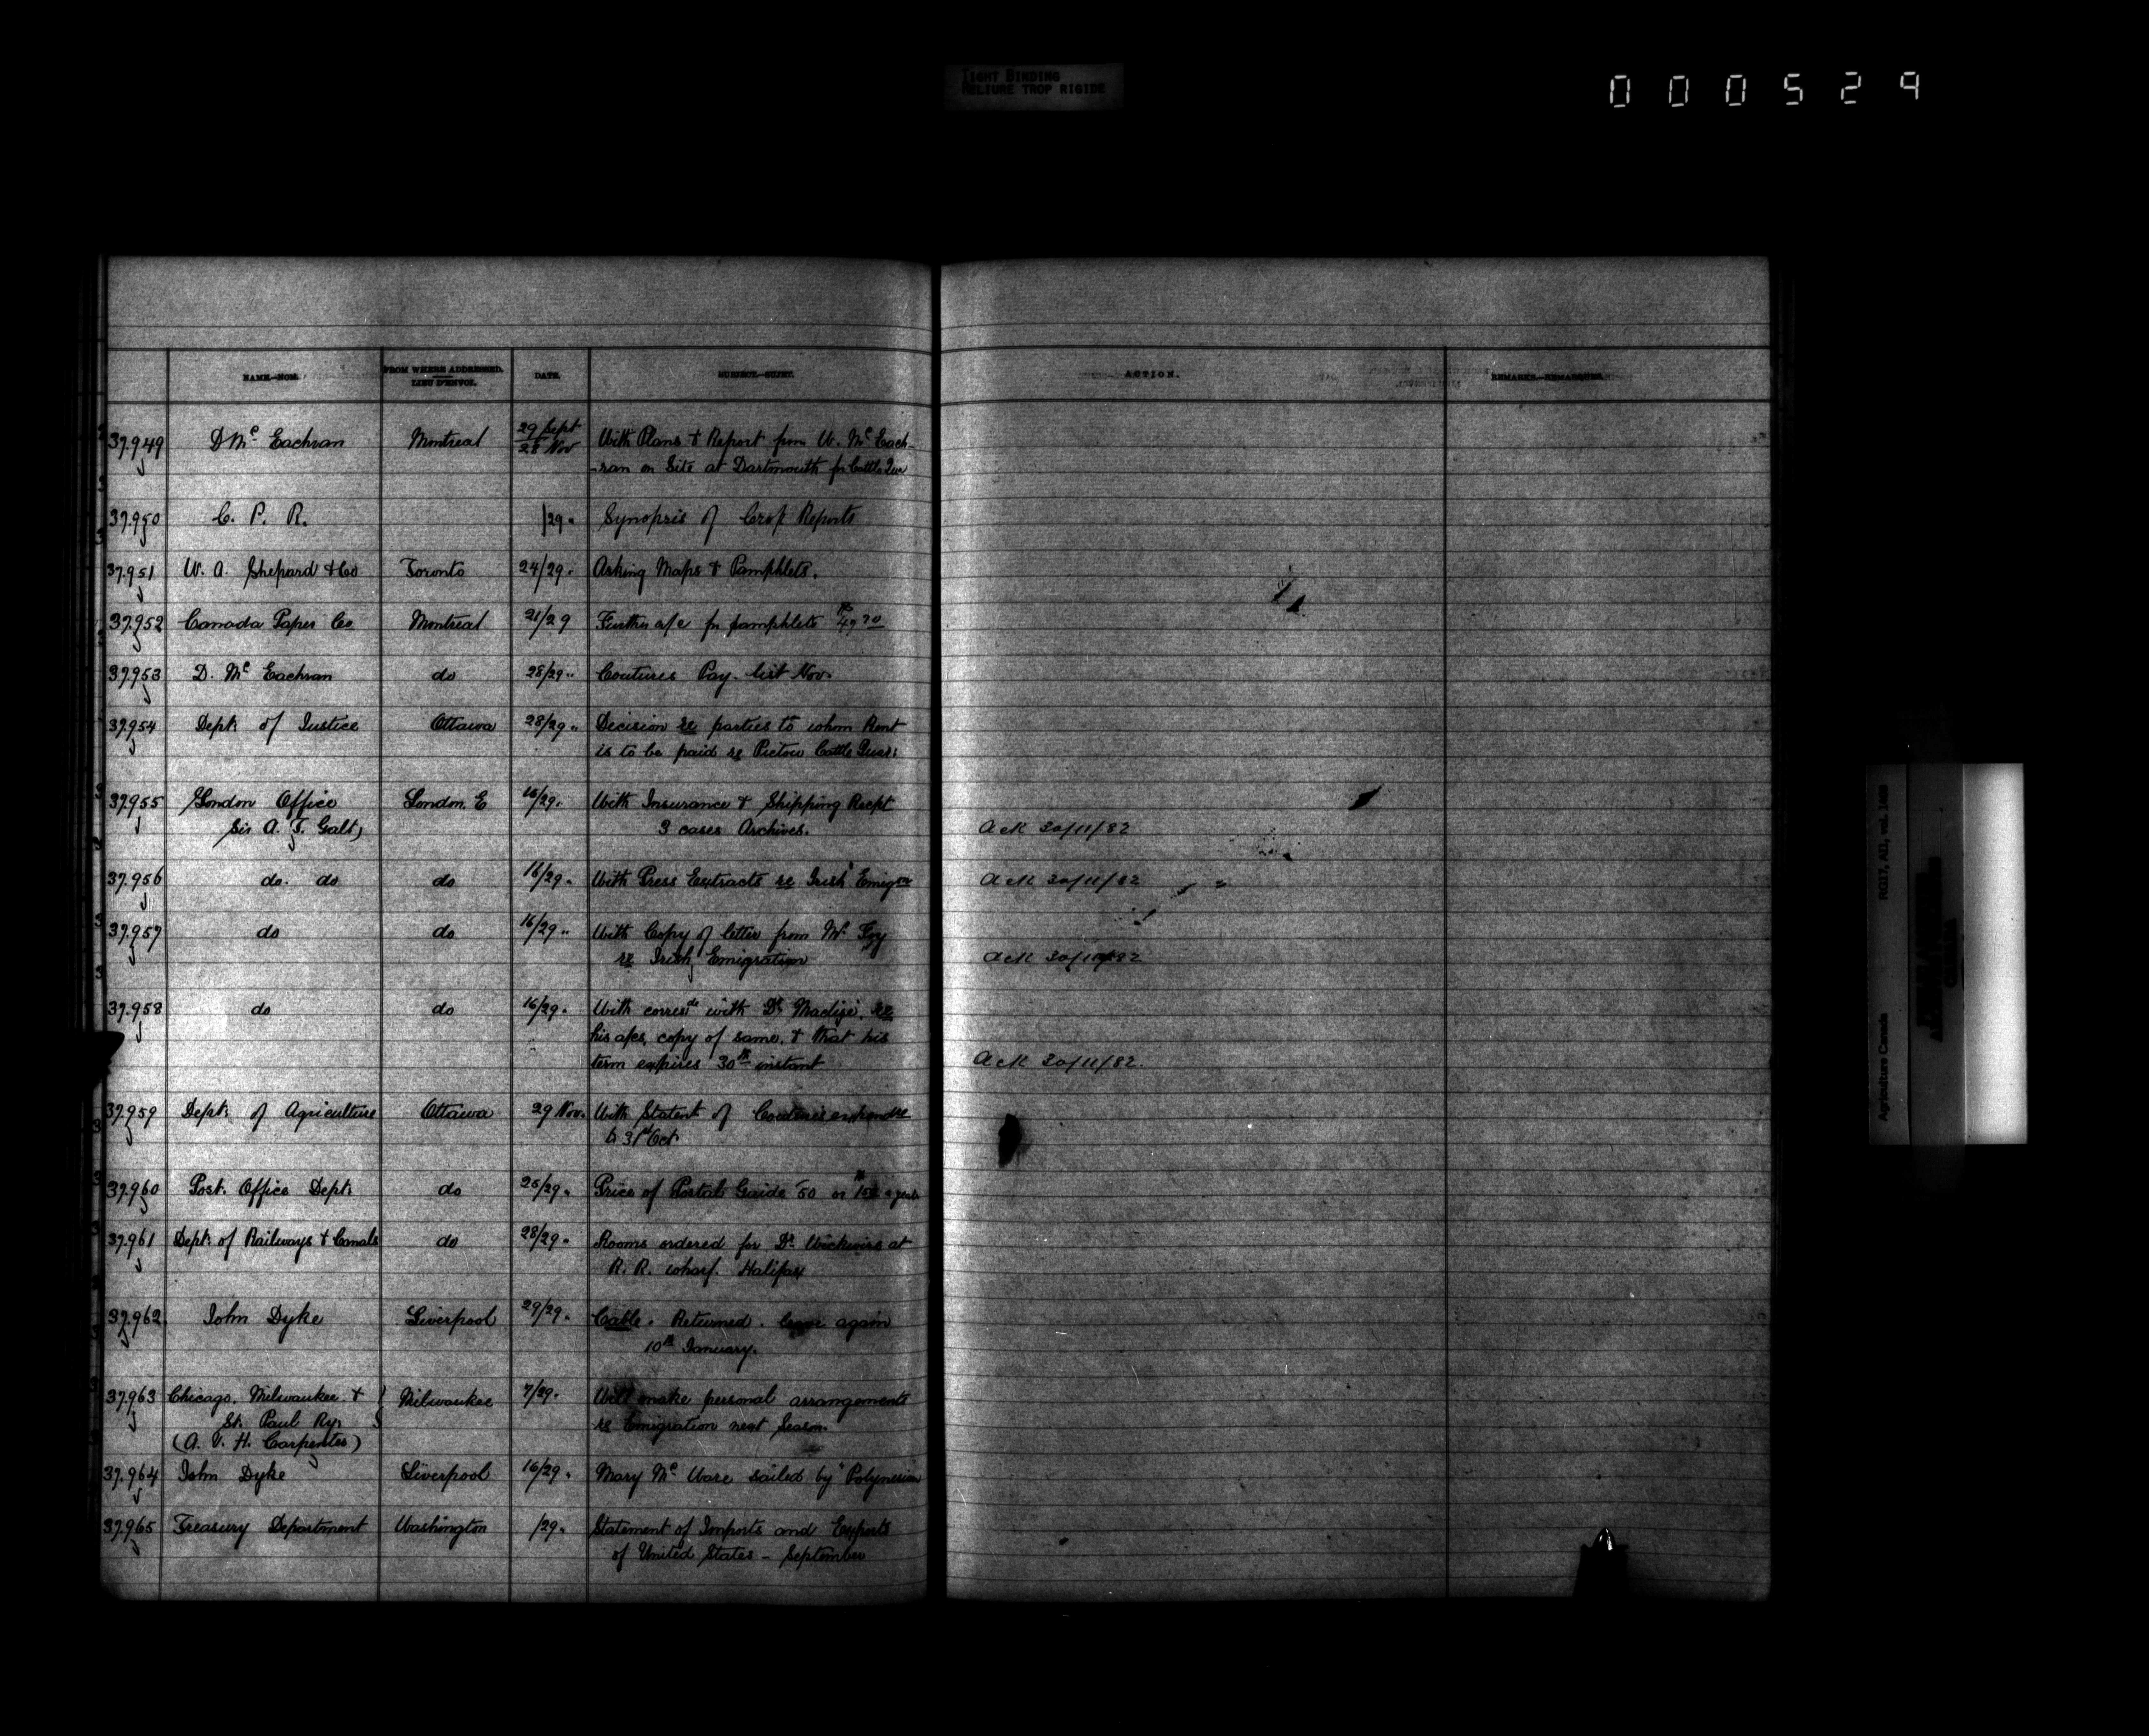 TIGHT BINDING
RELIURE TROP RIGIDE
000529
NAME.—NOM.
FROM WHERE ADDRESSED.
LIEU D'ENVOI.
DATE.
SUBJECT.—SUJET.
ACTION.
REMARKS.—REMARQUES.
37.949 D Mc Eachran Montreal 29 Sept 28 Nov With Plans & Report from W. Mc Each-
-ran on Site at Dartmouth for Cattle Quar
37.950 C. P. R. /29 " Synopsis of Crop Reports
37.951 W. A. Shepard & Co Toronto 24/29 " Asking Maps & Pamphlets.
37.952 Canada Paper Co Montreal 21/29 Further a/c for pamphlets
37.953 D. Mc Eachran do 28/29 " Coutures Pay-list Nov.
37.954 Dept of Justice Ottawa 28/29 " Decision re parties to whom Rent
is to be paid re Pictou Cattle Quar:
37.955 London Office London. E 16/29 " With Insurance & Shipping Recpt
Sir A. T. Galt) 3 cases Archives. Ack 30/11/82
37.956 do. do do 16/29 " With Press Extracts re Irish Emigon Ack 30/11/82
37.957 do do 16/29 " With Copy of letter from Mr Foy
re Irish Emigration Ack 30/11/82
37.958 do do 16/29 " With corresde with Dr re
his a/cs, copy of same. & that his
term expires 30th instant Ack 30/11/82.
37.959 Dept. of Agriculture Ottawa 29 Nov. With Statent of
to 31st Oct
37.960 Post. Office Dept. do 25/29 " Price of Postal Guide 50 or a year
37.961 Dept. of Railways & Canals do 28/29 " Rooms ordered for Dr Wickwire at
R. R. wharf. Halifax
37.962. John Dyke Liverpool 29/29 " Cable. Returned. again
10th January.
37.963 Chicago. Milwaukee & Milwaukee 7/29 " Will make personal arrangements
St. Paul Ry. re Emigration next Season.
(A. V. H. Carpenter)
37.964 John Dyke Liverpool 16/29 " Mary Mc Ware sailed by "Polynesian
37.965 Treasury Department Washington /29 " Statement of Imports and Exports
of United States - September
Agriculture Canada
RG17, AII, vol. 1468